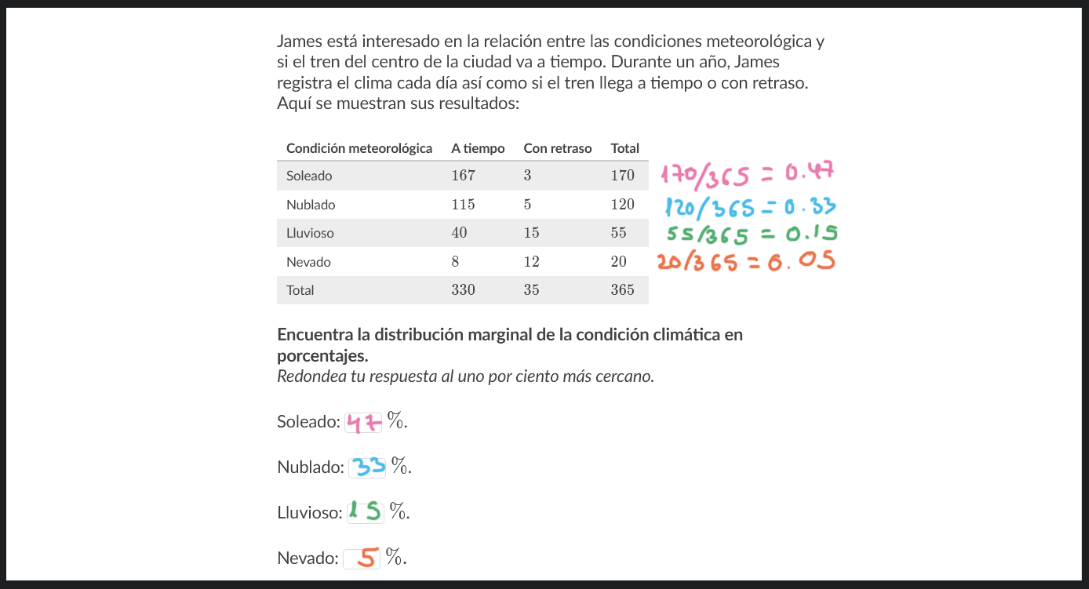 James está interesado en la relación entre las condiciones meteorológica y
si el tren del centro de la ciudad va a tiempo. Durante un año, James
registra el clima cada día así como si el tren llega a tiempo o con retraso.
Aquí se muestran sus resultados:
Condición meteorológica A tiempo Con retraso Total
Soleado 167 3 170 170/365 = 0.47
Nublado 115 5 120 120/365 = 0.33
Lluvioso 40 15 55 55/365 = 0.15
Nevado 8 12 20 20/365 = 0.05
Total 330 35 365
Encuentra la distribución marginal de la condición climática en
porcentajes.
Redondea tu respuesta al uno por ciento más cercano.
Soleado: 47 %.
Nublado: 33 %.
Lluvioso: 15 %.
Nevado: 5 %.